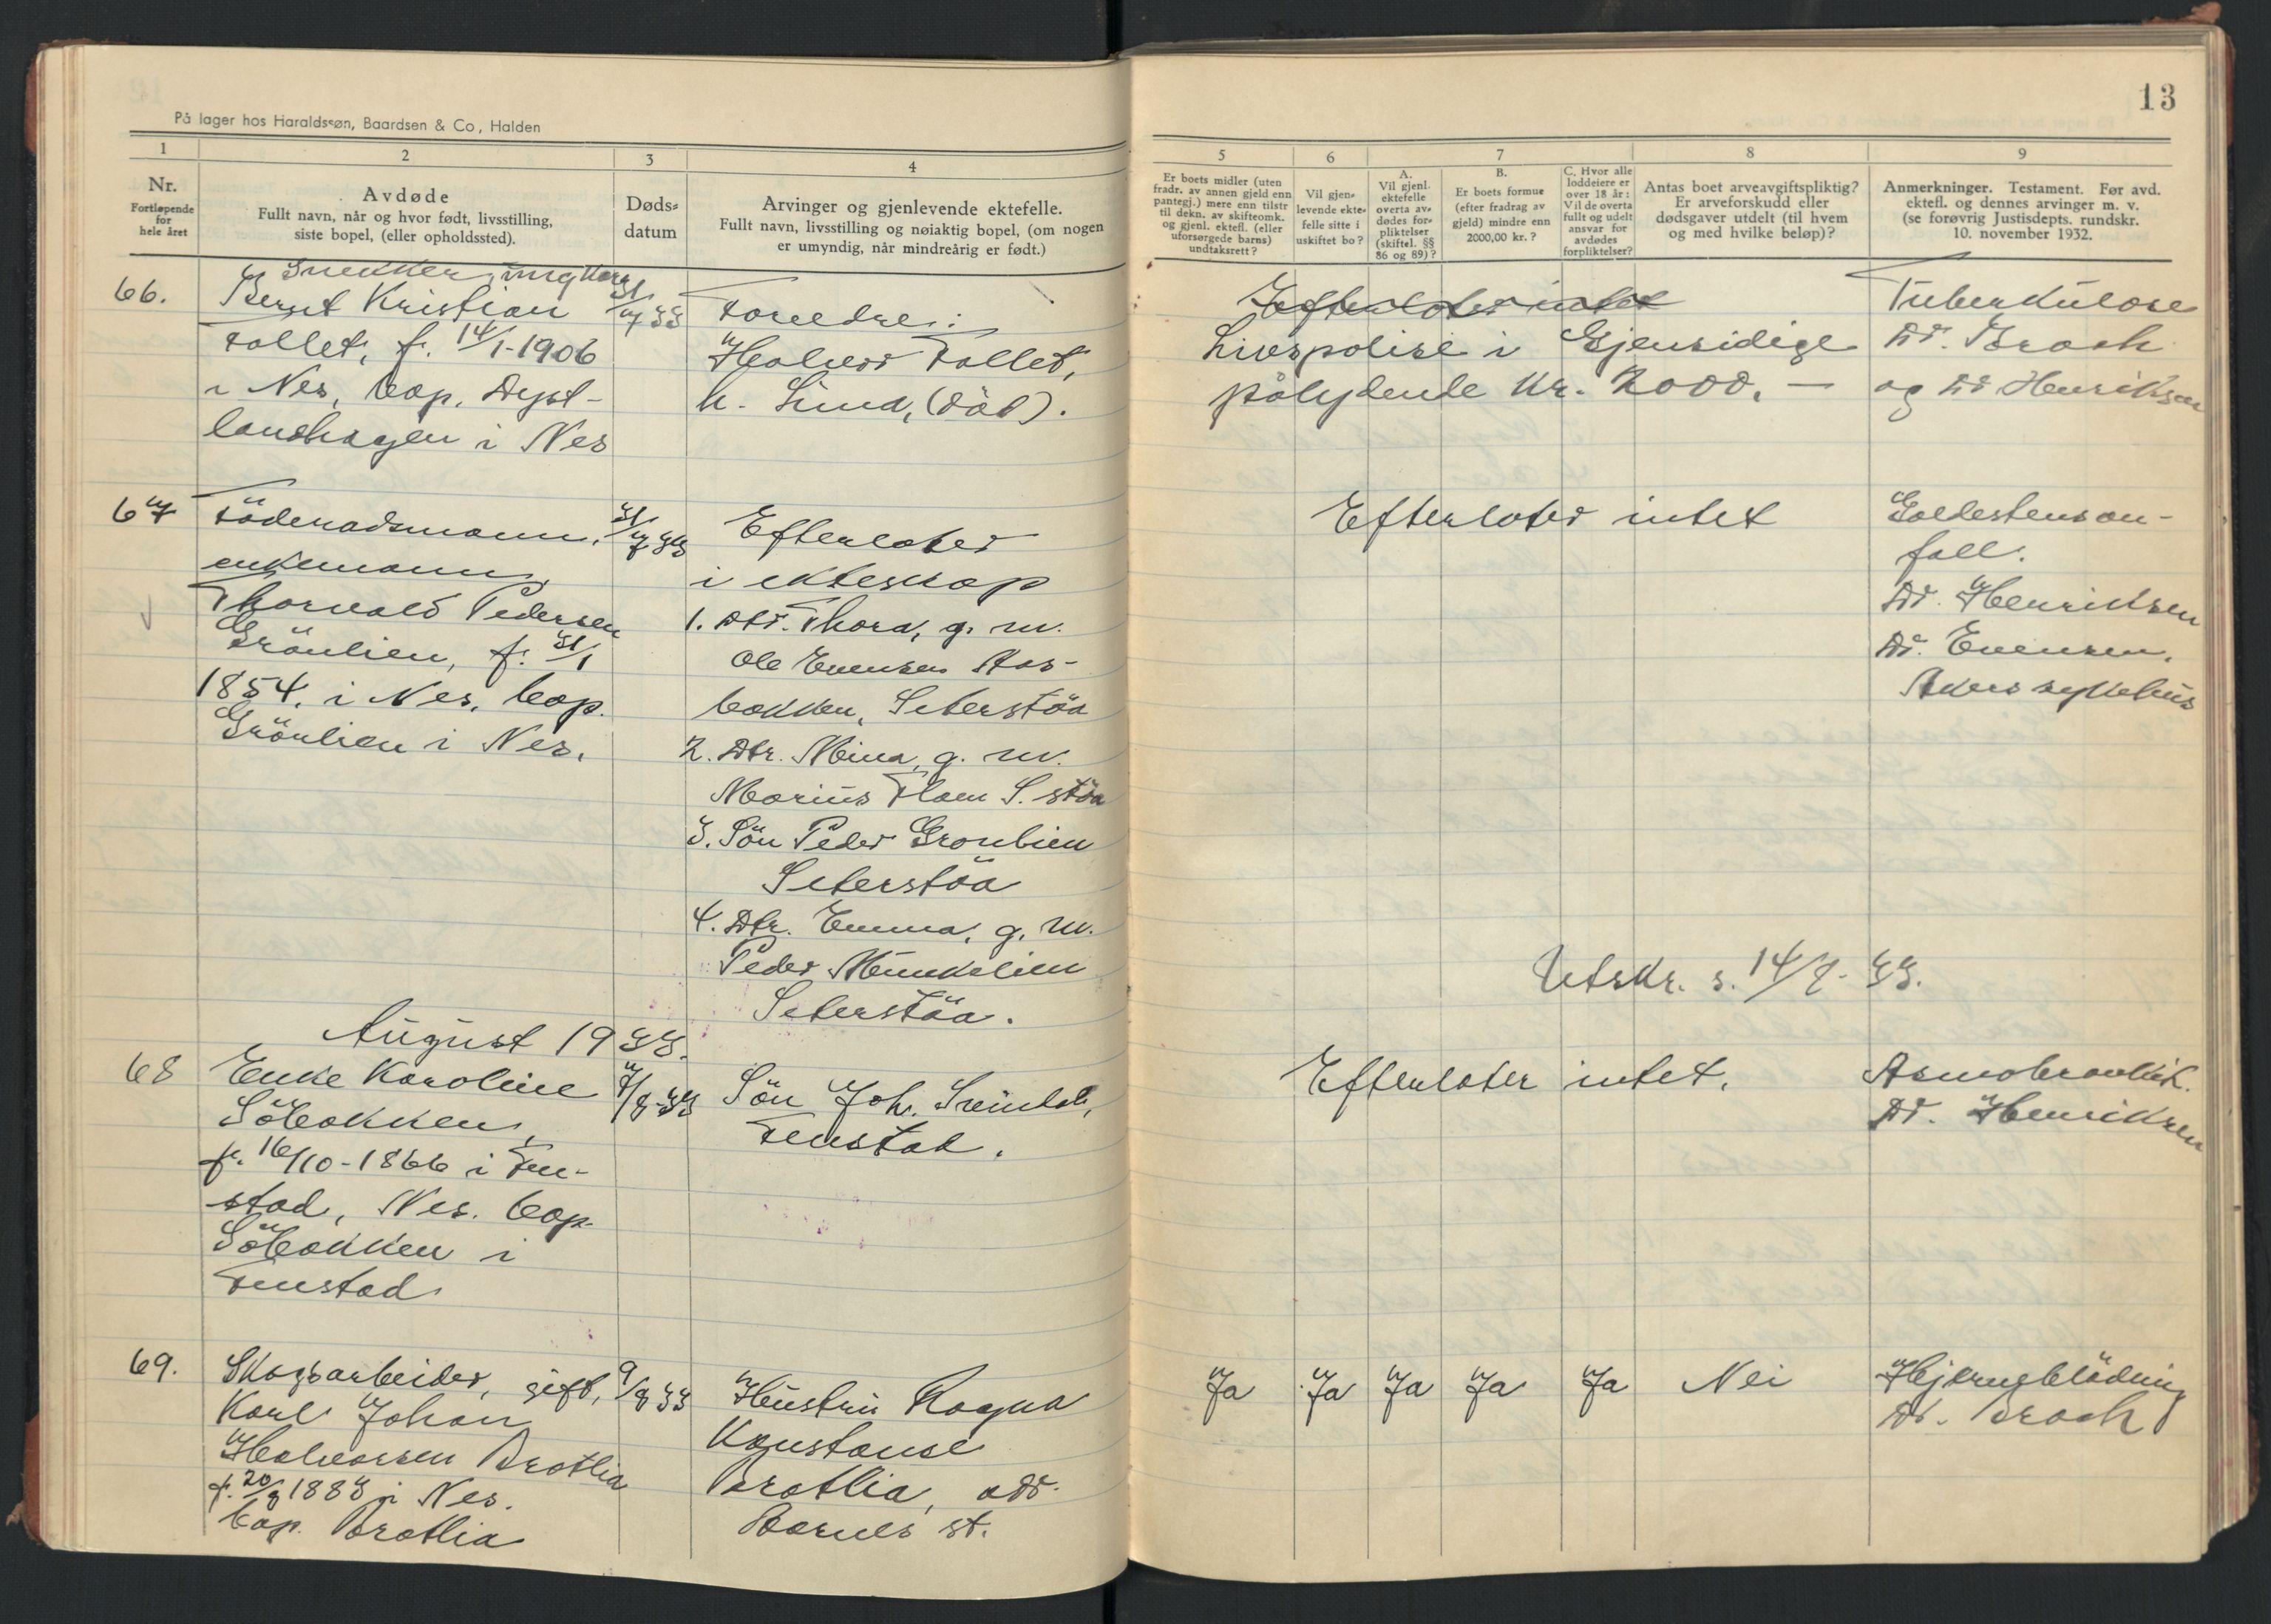 13
På lager hos Haraldssøn, Baardsen & Co, Halden
1
2
3
4
Nr.
Fortløpende
for
hele året
Avdøde
Fullt navn, når og hvor født, livsstilling,
siste bopel, (eller opholdssted).
Døds-
datum
Arvinger og gjenlevende ektefelle.
Fullt navn, livsstilling og nøiaktig bopel, (om nogen
er umyndig, når mindreårig er født.)
5
6
7
8
9
Er boets midler (uten
fradr. av annen gjeld enn
pantegj.) mere enn tilstr
til dekn. av skifteomk.
og gjenl. ektefl. (eller
uforsørgede barns)
undtaksrett?
Vil gjen-
levende ekte-
felle sitte i
uskiftet bo?
A.
Vil gjenl.
ektefelle
overta av-
dødes for-
pliktelser
(skiftel. §§
86 og 89)?
B.
Er boets formue
(efter fradrag av
gjeld) mindre enn
2000,00 kr.?
C. Hvor alle
loddeiere er
over 18 år:
Vil de overta
fullt og udelt
ansvar for
avdødes
forpliktelser?
Antas boet arveavgiftspliktig?
Er arveforskudd eller
dødsgaver utdelt (til hvem
og med hvilke beløp)?
Anmerkninger. Testament. Før avd.
ektefl. og dennes arvinger m. v.
(se forøvrig Justisdepts. rundskr.
10. november 1932.
66.
Snekker, ungkar
Bernt Kristian
Follet, f. 14/1-1906
i Nes, bop. Dyst-
landhagen i Nes
31/7 33
Foreldre:
Halvor Follet,
h. Lina, (död).
Efterlater intet
Livspolise i Gjensidige
pålydende kr. 2000.—
Tuberkulose
Dr. Broch
og Dr Henriksen
67
Föderådsmann,
enkemann
Thorvald Pedersen
Grönlien, f. 31/1
1854. i Nes, bop.
Grönlien i Nes.
31/7 33
Efterlater
i ekteskap
1. Dtr. Thora, g. m.
Ole Evensen Aas-
bakken, Seterstöa
2. Dtr. Mina, g. m.
Marius Flaen S. stöa
3. Sön Peder Gronlien
Seterstöa
4. Dtr. Emma, g. m.
Peder Munkelien
Seterstöa.
Efterlater intet
Galdestensan-
fall.
Dr. Henriksen
Dr. Evensen,
Akers sykehus
Utskr. s. 14/8-33.
August 1933.
68
Enke Karoline
Söbakken,
f. 16/10-1866 i Fen-
stad, Nes. bop.
Söbakken i
Fenstad
7/8-33
Sön Joh.
Fenstad.
Efterlater intet.
Dr. Henriksen
69.
Skogsarbeider, gift,
Karl Johan
Halvorsen Bratlia
f. 20/8 1883 i Nes.
bop. Bratlia
9/8 33
Hustru Ragna
Konstanse
Bratlia, adr.
Aarnes st.
Ja
Ja
Ja
Ja
Ja
Nei
Hjerneblödning
Dr. Broch